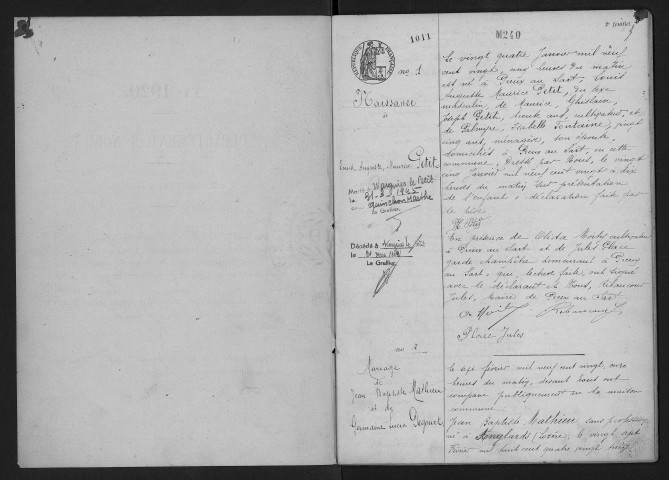 1011
M240
2e feuillet
RÉPUBLIQUE FRANÇAISE
no 1
Naissance
de
Ernest Auguste Maurice Petit
Marié à Wargnies le Petit
le 31-3-1945
Le Greffier
Décédé à
le
Le Greffier
Le vingt quatre Janvier mil neuf
cent vingt, heures du matin
est né à Preux au Sart,
Auguste Maurice Petit, du sexe
masculin, de Maurice, Ghislain,
Joseph Petit, trente ans, cultivateur, et
de Palmyre, Isabelle Fontaine, vingt
cinq ans, ménagère, son épouse,
domiciliés à Preux au Sart, en cette
commune. Dressé par Nous, le vingt
cinq Janvier mil neuf cent vingt à dix
heures du matin, sur présentation
de l'enfant & déclaration faite par
le père
En présence de cultivateur
à Preux au Sart et de Jules Place
garde champêtre demeurant à Preux
au Sart, qui, lecture faite, ont signé
avec le déclarant et Nous,
Jules, Maire de Preux au Sart
Place Jules
no 2
Mariage
de
Jean Baptiste Mathieu
et de
Germaine Lucie
Le sept février mil neuf cent vingt, onze
heures du matin, devant Nous ont
comparu publiquement en la maison
commune
Jean Baptiste Mathieu, sans profession
né à le vingt sept
mil huit cent quatre vingt